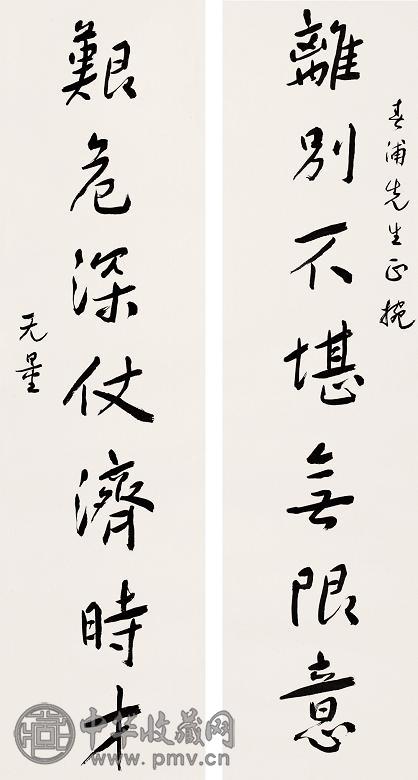 春浦先生正捥
離別不堪無限意
艱危深仗濟時才
无量
中华收藏网
www.pmv.cn